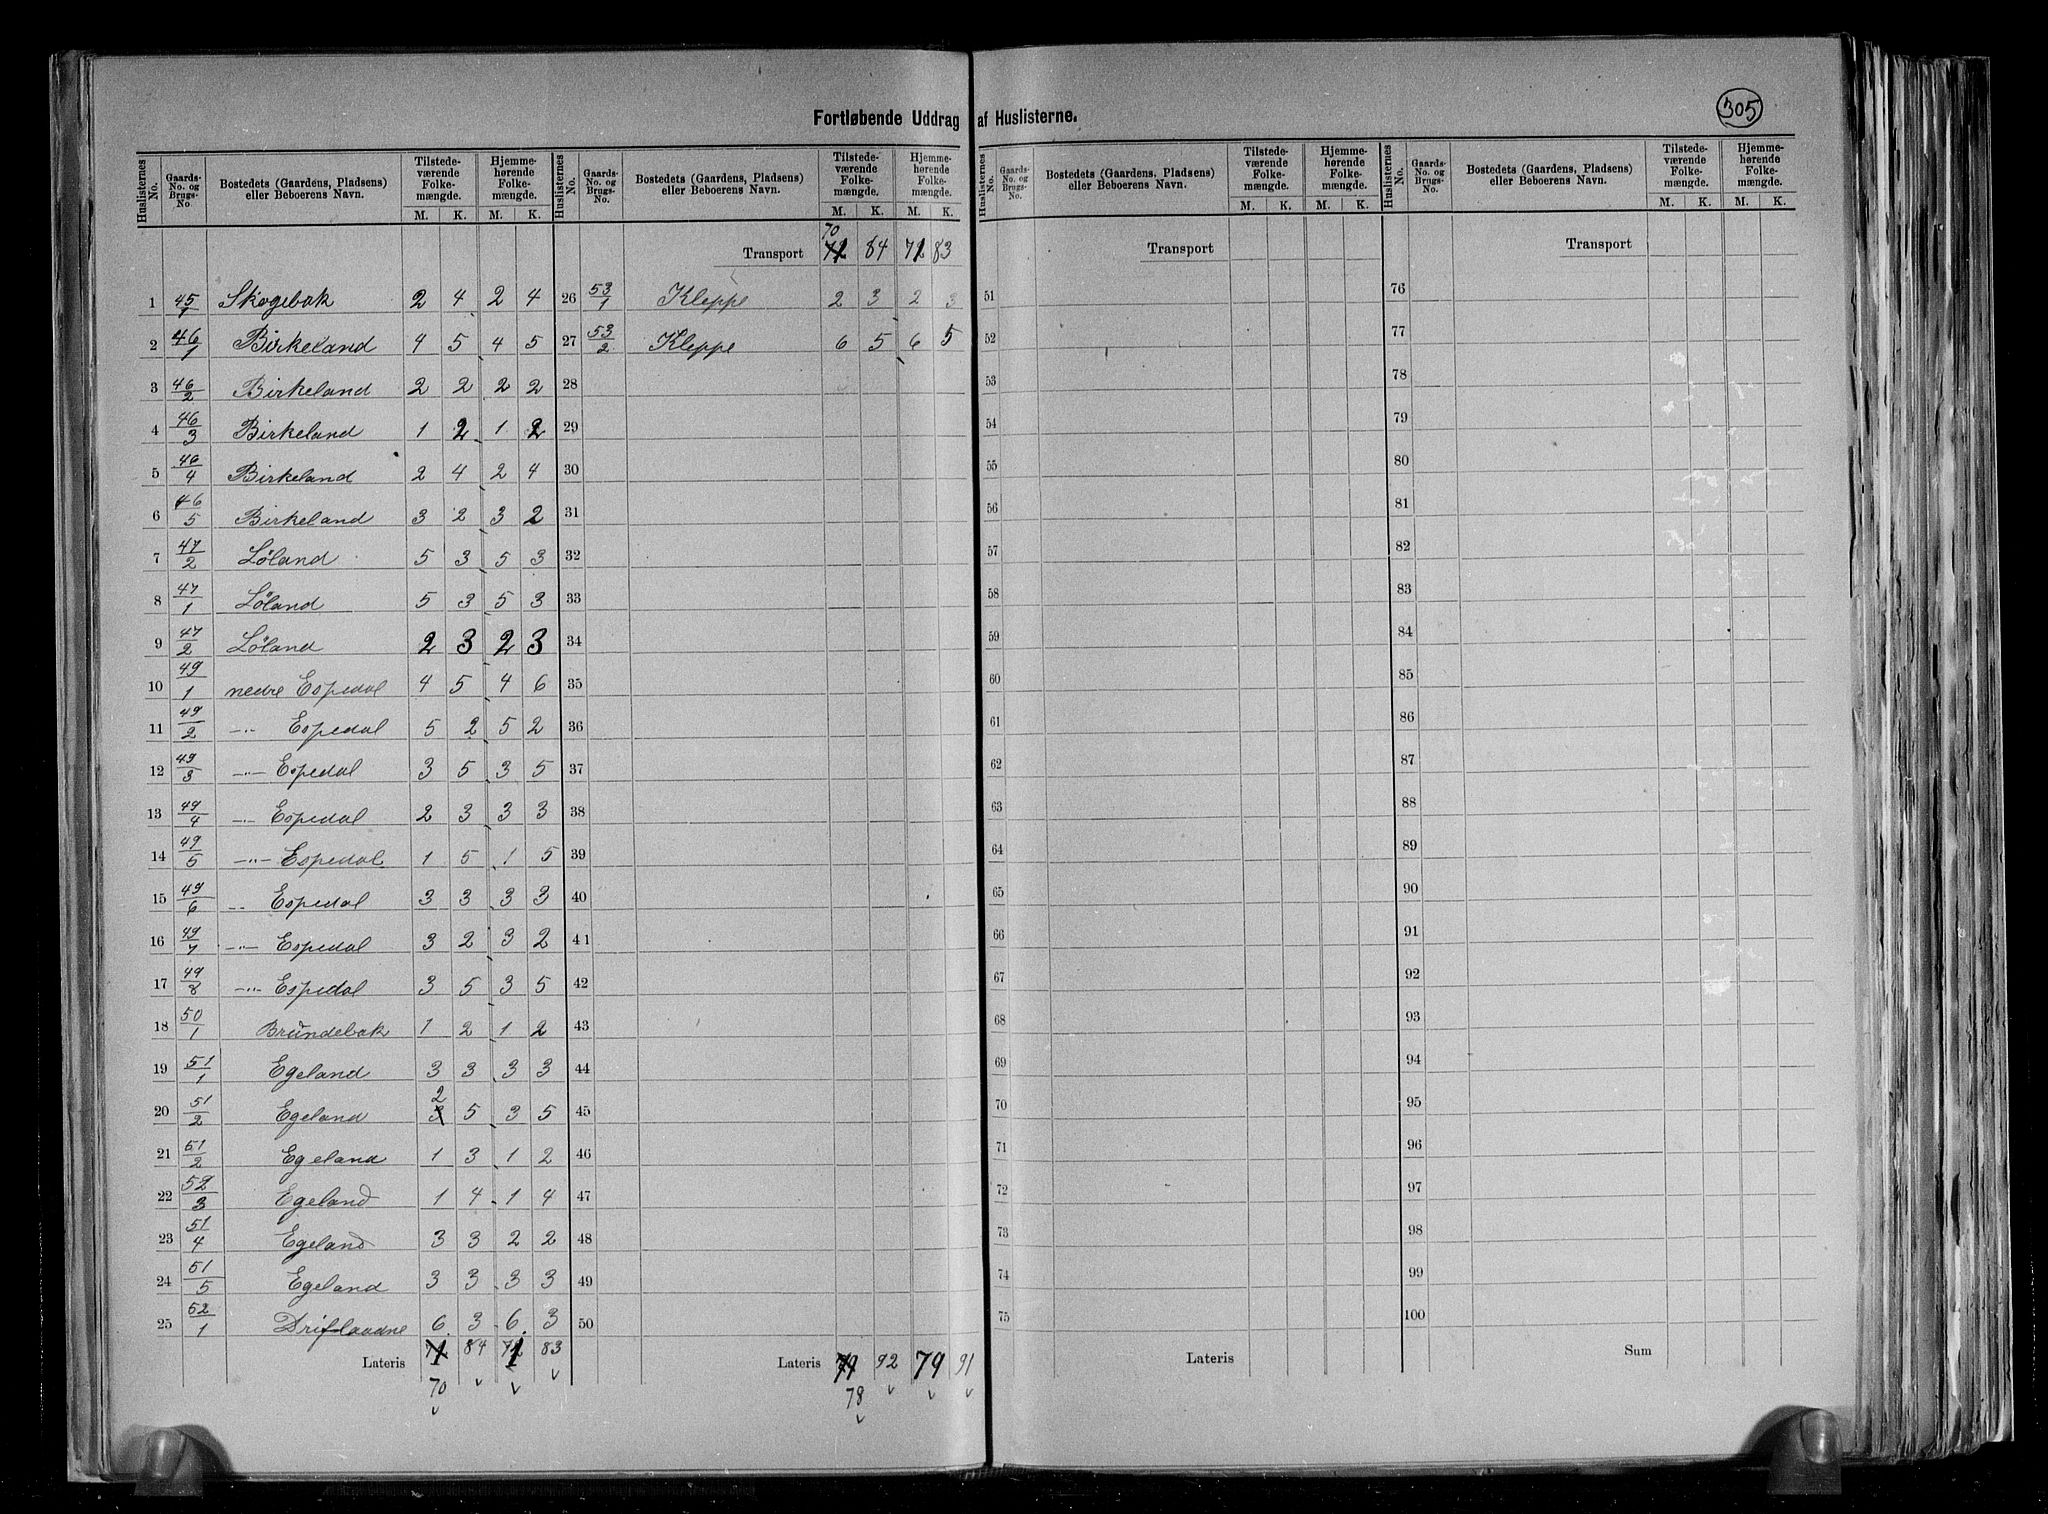 305
Fortløbende Uddrag af Huslisterne.
Huslisternes No. | Gaards-No. og Brugs-No. | Bostedets (Gaardens, Pladsens) eller Beboerens Navn. | Tilstedeværende Folkemængde. M. K. | Hjemmehørende Folkemængde. M. K.
1 45/1 Skogebak 2 4 2 4
2 46/1 Birkeland 4 5 4 5
3 46/2 Birkeland 2 2 2 2
4 46/3 Birkeland 1 2 1 2
5 46/4 Birkeland 2 4 2 4
6 46/5 Birkeland 3 2 3 2
7 47/2 Løland 5 3 5 3
8 47/1 Løland 5 3 5 3
9 47/2 Løland 2 3 2 3
10 49/1 nedre Espedal 4 5 4 6
11 49/2 -"- Espedal 5 2 5 2
12 49/3 -"- Espedal 3 5 3 5
13 49/4 -"- Espedal 2 3 3 3
14 49/5 -"- Espedal 1 5 1 5
15 49/6 -"- Espedal 3 3 3 3
16 49/7 -"- Espedal 3 2 3 2
17 49/8 -"- Espedal 3 5 3 5
18 50/1 Brundebak 1 2 1 2
19 51/1 Egeland 3 3 3 3
20 51/2 Egeland 2 3 5 3 5
21 51/2 Egeland 1 3 1 2
22 52/3 Egeland 1 4 1 4
23 51/4 Egeland 3 3 2 2
24 51/5 Egeland 3 3 3 3
25 52/1 Driflaadne 6 3 6 3
Lateris 71 84 71 83
70
Huslisternes No. | Gaards-No. og Brugs-No. | Bostedets (Gaardens, Pladsens) eller Beboerens Navn. | Tilstedeværende Folkemængde. M. K. | Hjemmehørende Folkemængde. M. K.
70
Transport 71 84 71 83
26 53/1 Kleppe 2 3 2 3
27 53/2 Kleppe 6 5 6 5
28
29
30
31
32
33
34
35
36
37
38
39
40
41
42
43
44
45
46
47
48
49
50
Lateris 79 92 79 91
78
Huslisternes No. | Gaards-No. og Brugs-No. | Bostedets (Gaardens, Pladsens) eller Beboerens Navn. | Tilstedeværende Folkemængde. M. K. | Hjemmehørende Folkemængde. M. K.
Transport
51
52
53
54
55
56
57
58
59
60
61
62
63
64
65
66
67
68
69
70
71
72
73
74
75
Lateris
Huslisternes No. | Gaards-No. og Brugs-No. | Bostedets (Gaardens, Pladsens) eller Beboerens Navn. | Tilstedeværende Folkemængde. M. K. | Hjemmehørende Folkemængde. M. K.
Transport
76
77
78
79
80
81
82
83
84
85
86
87
88
89
90
91
92
93
94
95
96
97
98
99
100
Sum